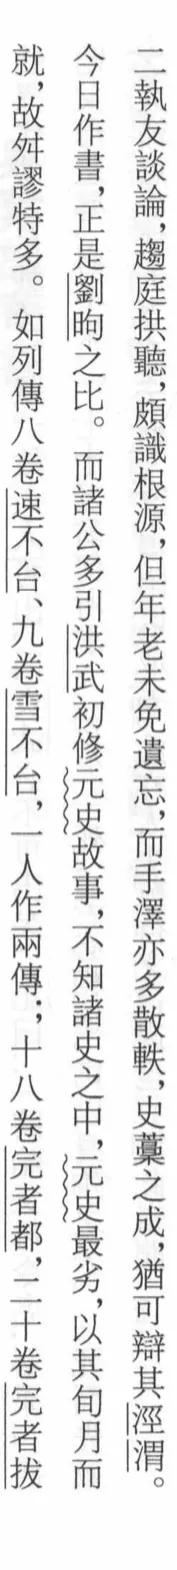 二執友談論，趨庭拱聽，頗識根源，但年老未免遺忘，而手澤亦多散軼，史藁之成，猶可辯其涇渭。
今日作書，正是劉昫之比。而諸公多引洪武初修元史故事，不知諸史之中，元史最劣，以其旬月而
就，故舛謬特多。如列傳八卷速不台、九卷雪不台，一人作兩傳；十八卷完者都，二十卷完者拔